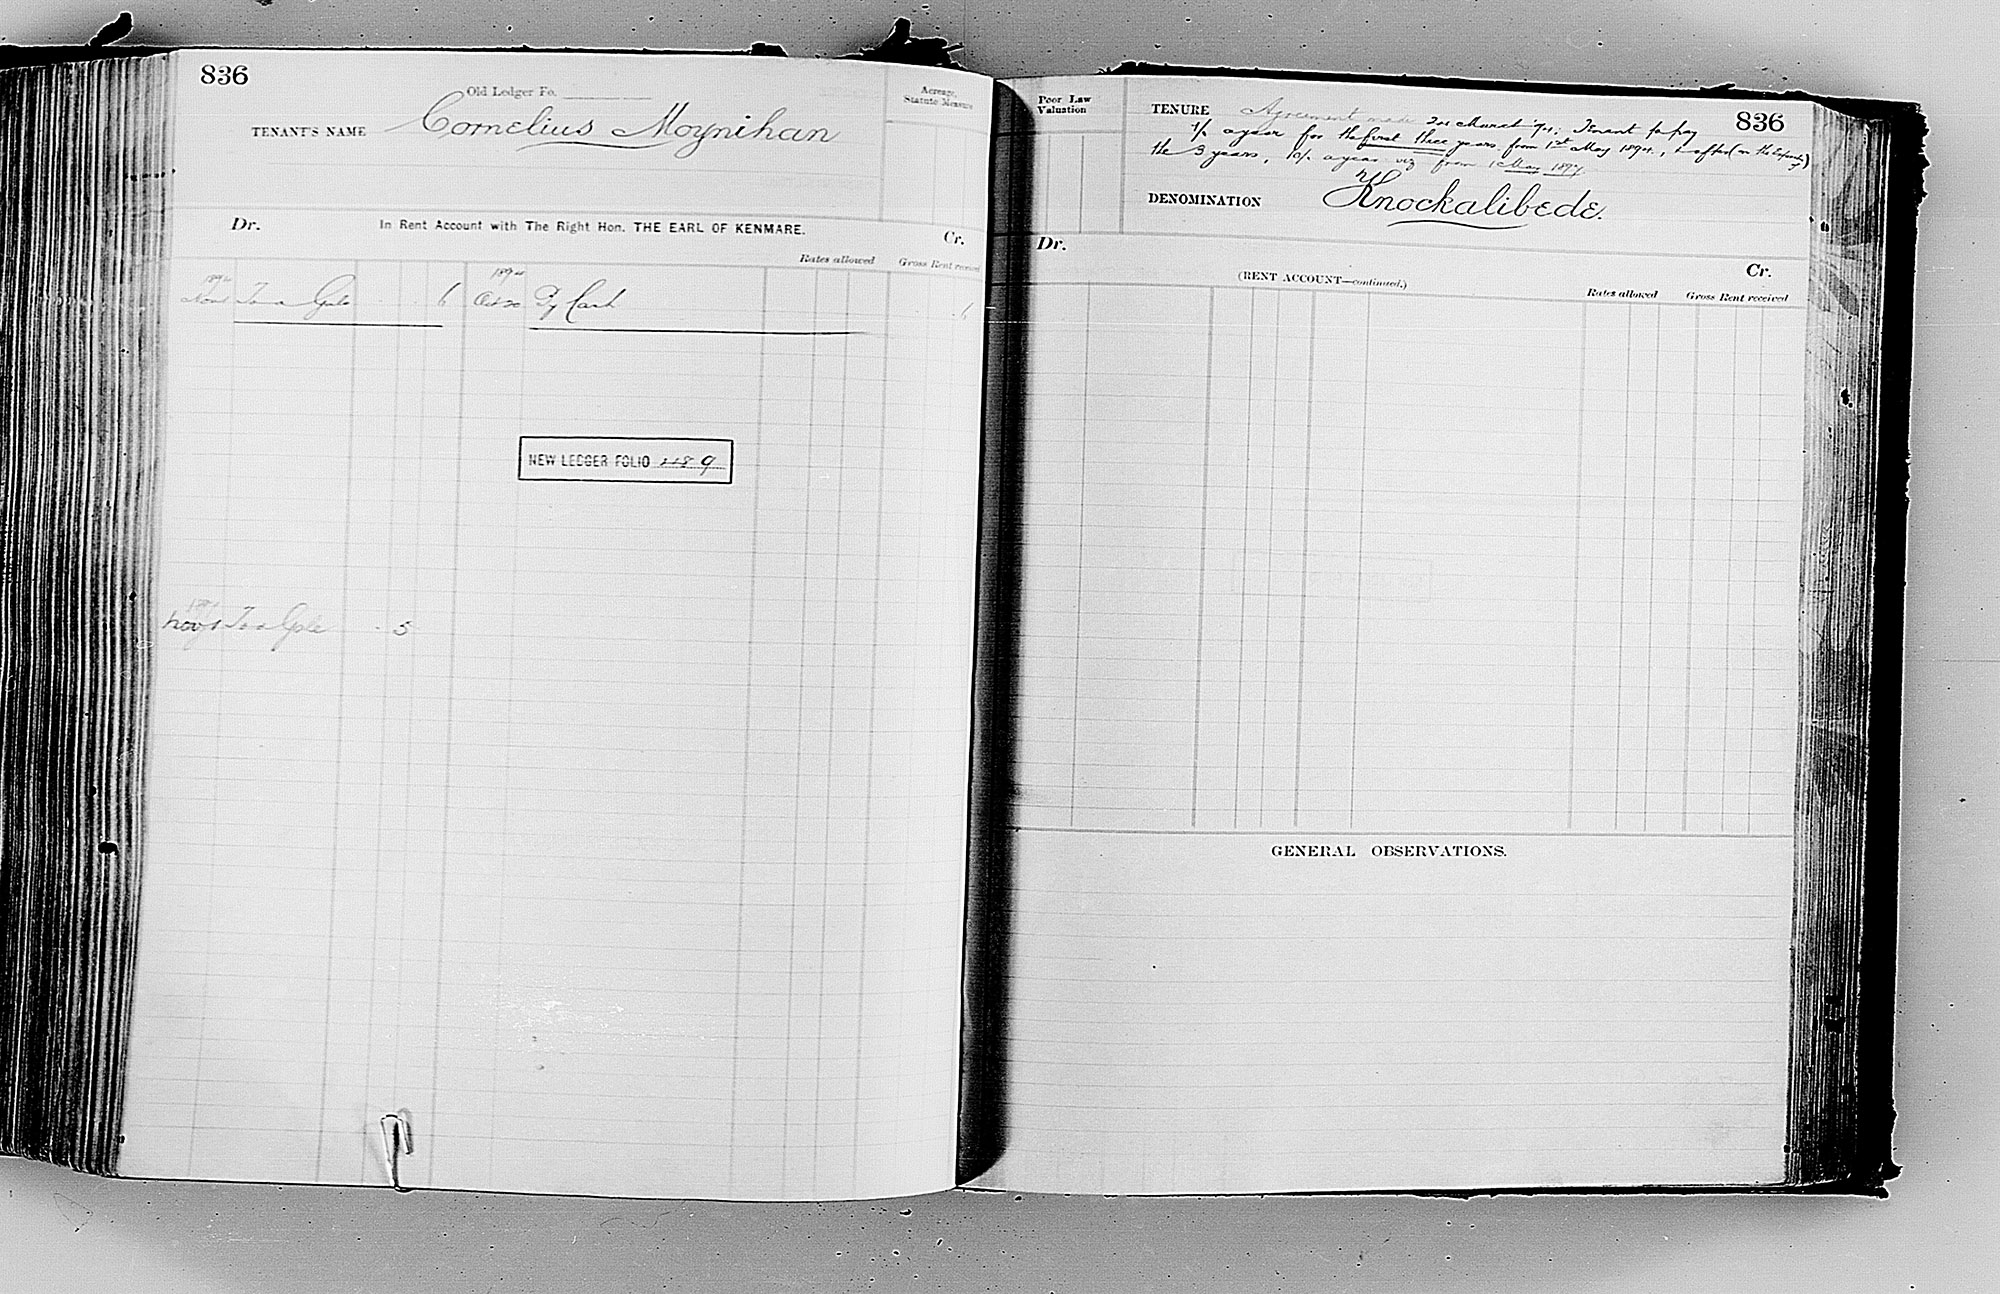 836
Old Ledger Fo.
TENANT'S NAME Cornelius Moynihan
Acreage,
Statute Measure
Dr. In Rent Account with The Right Hon. THE EARL OF KENMARE. Cr.
Rates allowed Gross Rent received
Nov To a Gale 6 Oct 20 By Cash 6
NEW LEDGER FOLIO 489
Nov 1 To a Gale 5
Poor Law
Valuation
TENURE Agreement made March Tenant to pay
1/- a year for the first three years from 1st May 1894, & after
the 3 years, 10/- a year viz from 1 May 1897.
836
DENOMINATION Knockalibede.
Dr. Cr.
(RENT ACCOUNT—continued.)
Rates allowed Gross Rent received
GENERAL OBSERVATIONS.